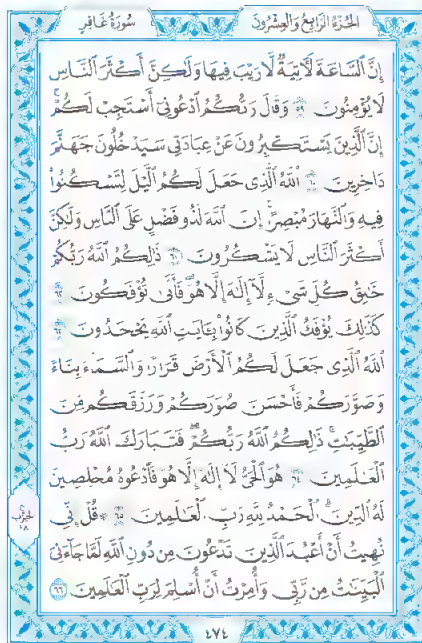 الجُزءُ الرَّابِعُ وَالعِشْرُونَ سُورَةُ غَافِرٍ
إِنَّ السَّاعَةَ لَآتِيَةٌ لَّا رَيْبَ فِيهَا وَلَٰكِنَّ أَكْثَرَ النَّاسِ
لَا يُؤْمِنُونَ ٥٩ وَقَالَ رَبُّكُمُ ادْعُونِي أَسْتَجِبْ لَكُمْ ۚ
إِنَّ الَّذِينَ يَسْتَكْبِرُونَ عَنْ عِبَادَتِي سَيَدْخُلُونَ جَهَنَّمَ
دَاخِرِينَ ٦٠ اللَّهُ الَّذِي جَعَلَ لَكُمُ اللَّيْلَ لِتَسْكُنُوا
فِيهِ وَالنَّهَارَ مُبْصِرًا ۚ إِنَّ اللَّهَ لَذُو فَضْلٍ عَلَى النَّاسِ وَلَٰكِنَّ
أَكْثَرَ النَّاسِ لَا يَشْكُرُونَ ٦١ ذَٰلِكُمُ اللَّهُ رَبُّكُمْ
خَالِقُ كُلِّ شَيْءٍ لَّا إِلَٰهَ إِلَّا هُوَ ۖ فَأَنَّىٰ تُؤْفَكُونَ ٦٢
كَذَٰلِكَ يُؤْفَكُ الَّذِينَ كَانُوا بِآيَاتِ اللَّهِ يَجْحَدُونَ ٦٣
اللَّهُ الَّذِي جَعَلَ لَكُمُ الْأَرْضَ قَرَارًا وَالسَّمَاءَ بِنَاءً
وَصَوَّرَكُمْ فَأَحْسَنَ صُوَرَكُمْ وَرَزَقَكُم مِّنَ
الطَّيِّبَاتِ ۚ ذَٰلِكُمُ اللَّهُ رَبُّكُمْ ۖ فَتَبَارَكَ اللَّهُ رَبُّ
الْعَالَمِينَ ٦٤ هُوَ الْحَيُّ لَا إِلَٰهَ إِلَّا هُوَ فَادْعُوهُ مُخْلِصِينَ
لَهُ الدِّينَ ۗ الْحَمْدُ لِلَّهِ رَبِّ الْعَالَمِينَ ٦٥ ۞ قُلْ إِنِّي
نُهِيتُ أَنْ أَعْبُدَ الَّذِينَ تَدْعُونَ مِن دُونِ اللَّهِ لَمَّا جَاءَنِيَ
الْبَيِّنَاتُ مِن رَّبِّي وَأُمِرْتُ أَنْ أُسْلِمَ لِرَبِّ الْعَالَمِينَ ٦٦
الحزب
٤٨
٤٧٤